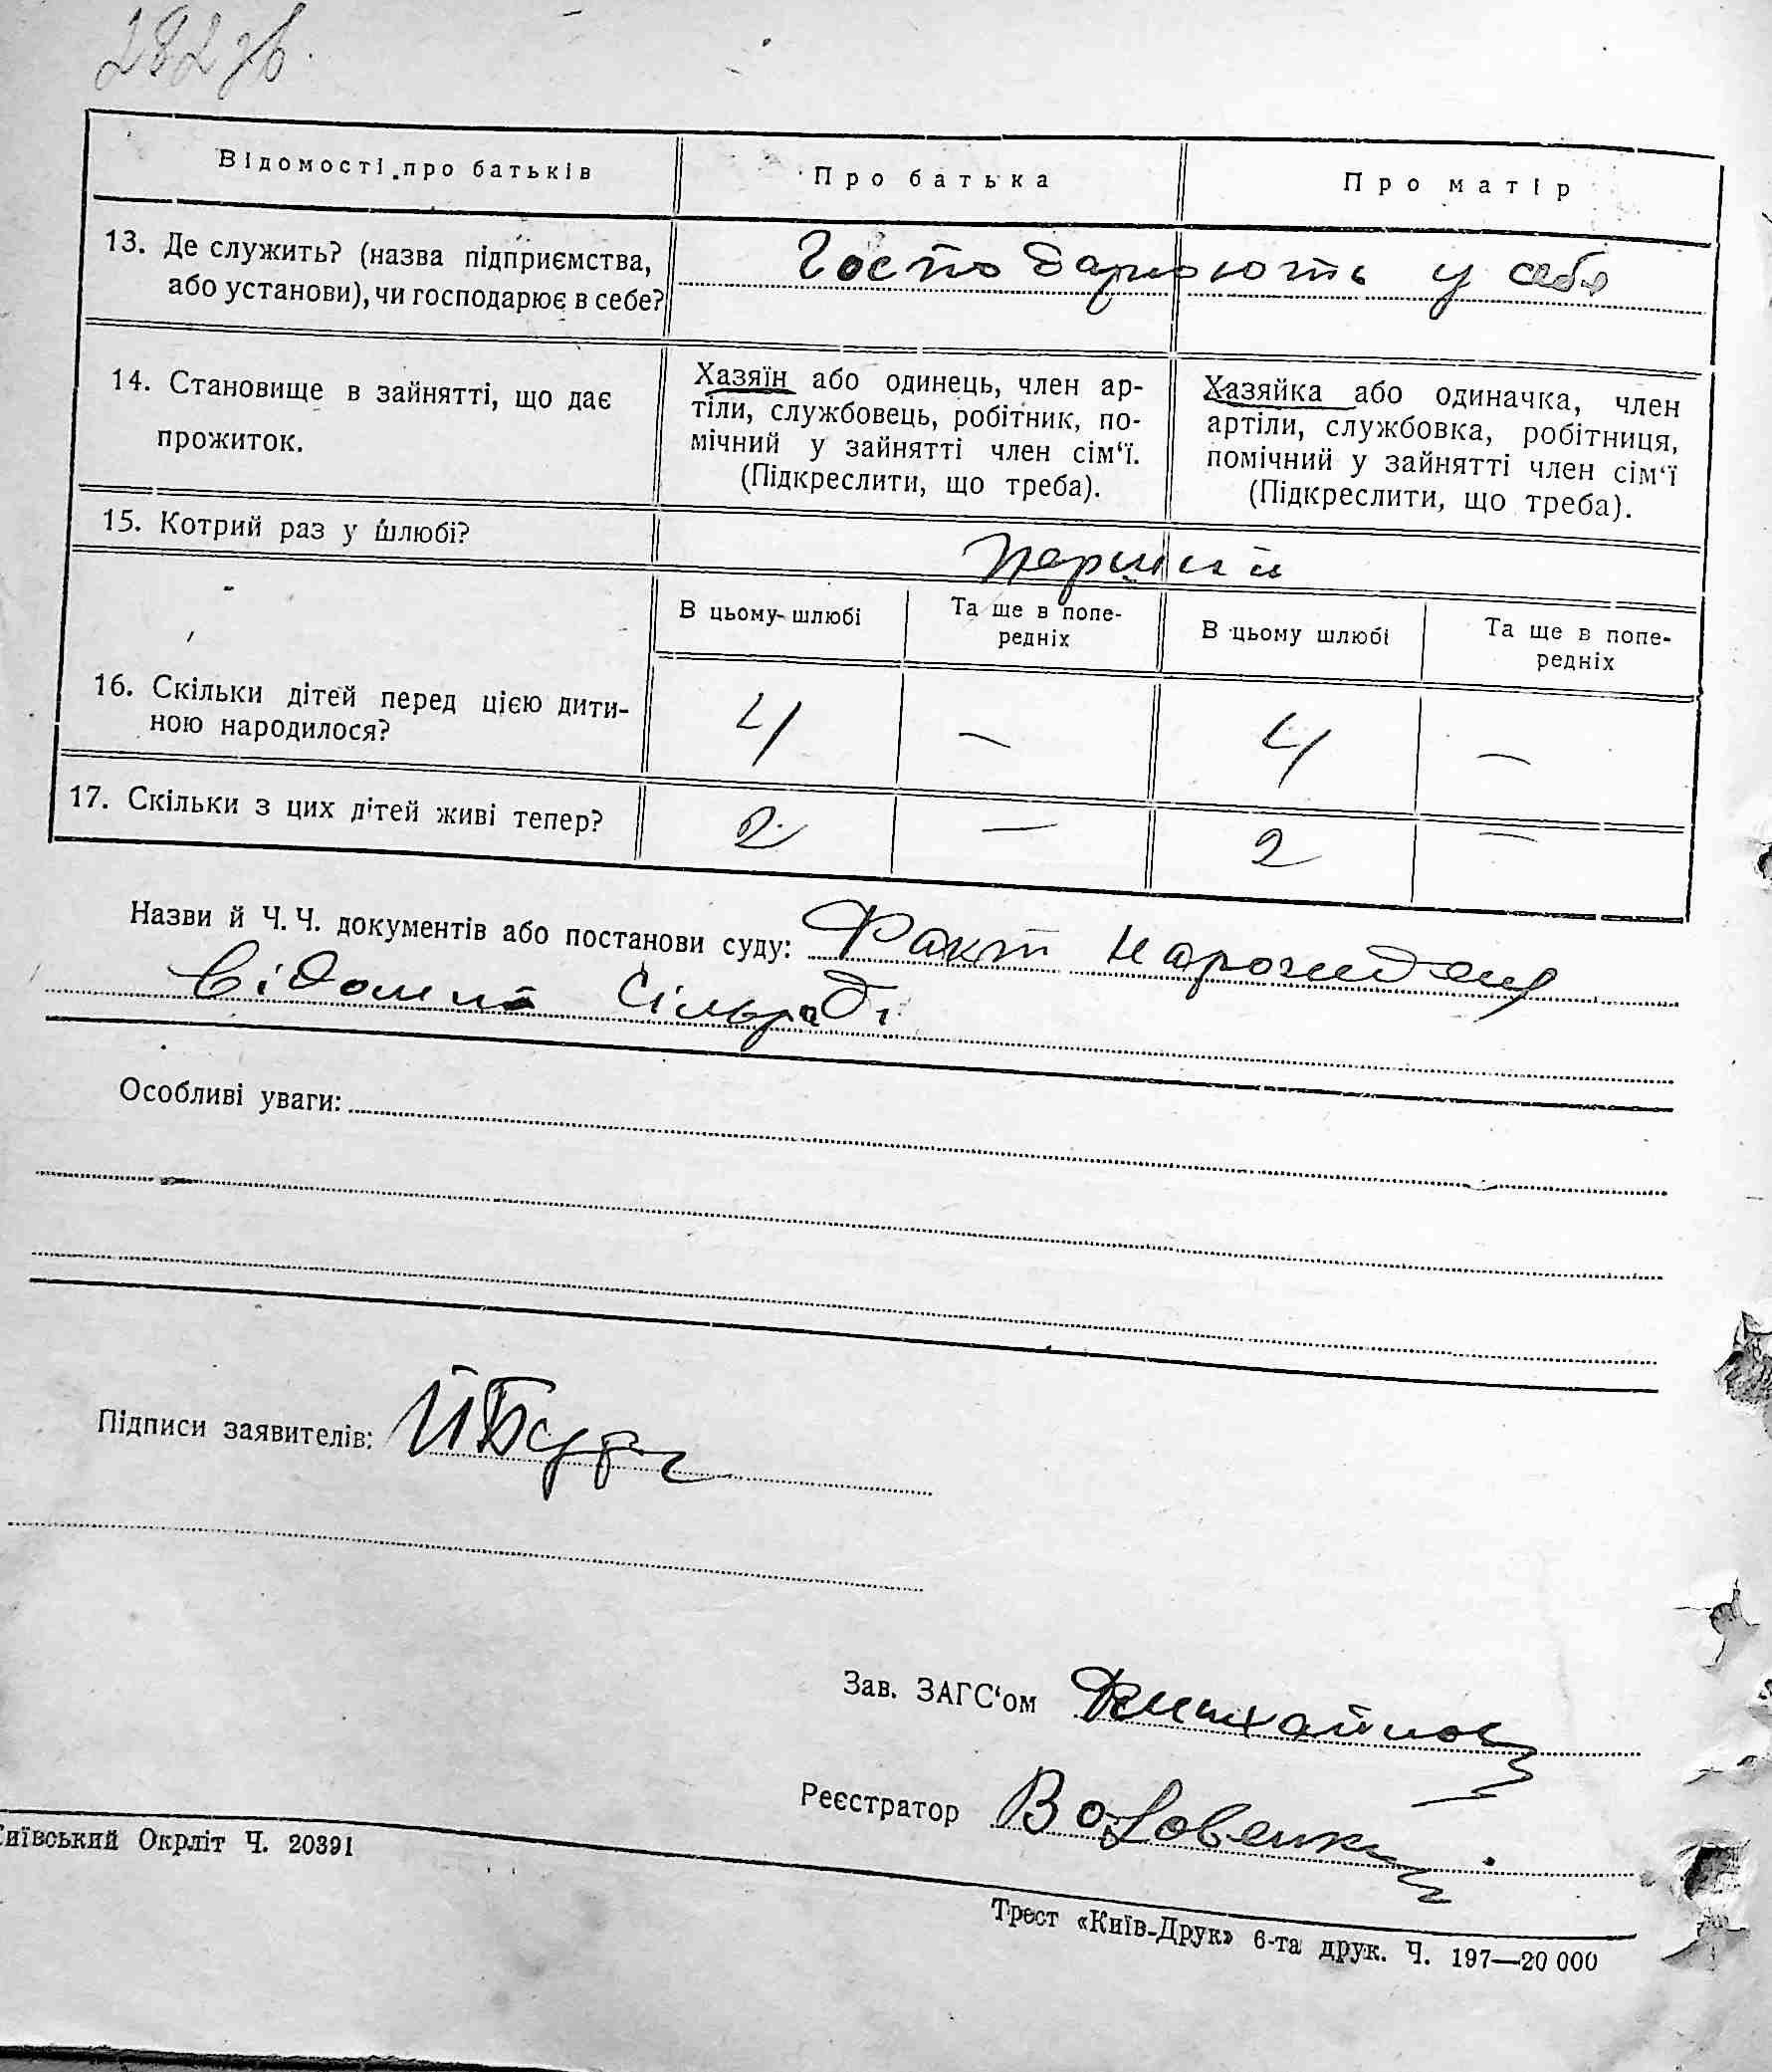 282 зв.
Відомості про батьків
Про батька
Про матір
13. Де служить? (назва підприємства,
або установи), чи господарює в себе?
Господарюють у себе
14. Становище в зайнятті, що дає
прожиток.
Хазяїн або одинець, член ар-
тіли, службовець, робітник, по-
мічний у зайнятті член сім‘ї.
(Підкреслити, що треба).
Хазяйка або одиначка, член
артіли, службовка, робітниця,
помічний у зайнятті член сім‘ї
(Підкреслити, що треба).
15. Котрий раз у шлюбі?
перший
В цьому шлюбі
Та ще в попе-
редніх
В цьому шлюбі
Та ще в попе-
редніх
16. Скільки дітей перед цією дити-
ною народилося?
4 — 4 —
17. Скільки з цих дітей живі тепер?
2 — 2 —
Назви й Ч. Ч. документів або постанови суду: Факт народження
відомий Сільраді
Особливі уваги:
Підписи заявителів:
Зав. ЗАГС‘ом
Реєстратор
Київський Окрліт Ч. 20391
Трест «Київ-Друк» 6-та друк. Ч. 197—20 000